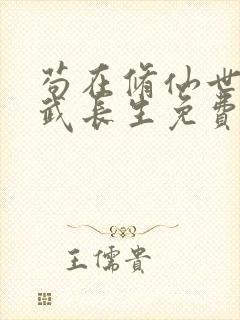 苟在脩仙世
武長生免費
王儒貴